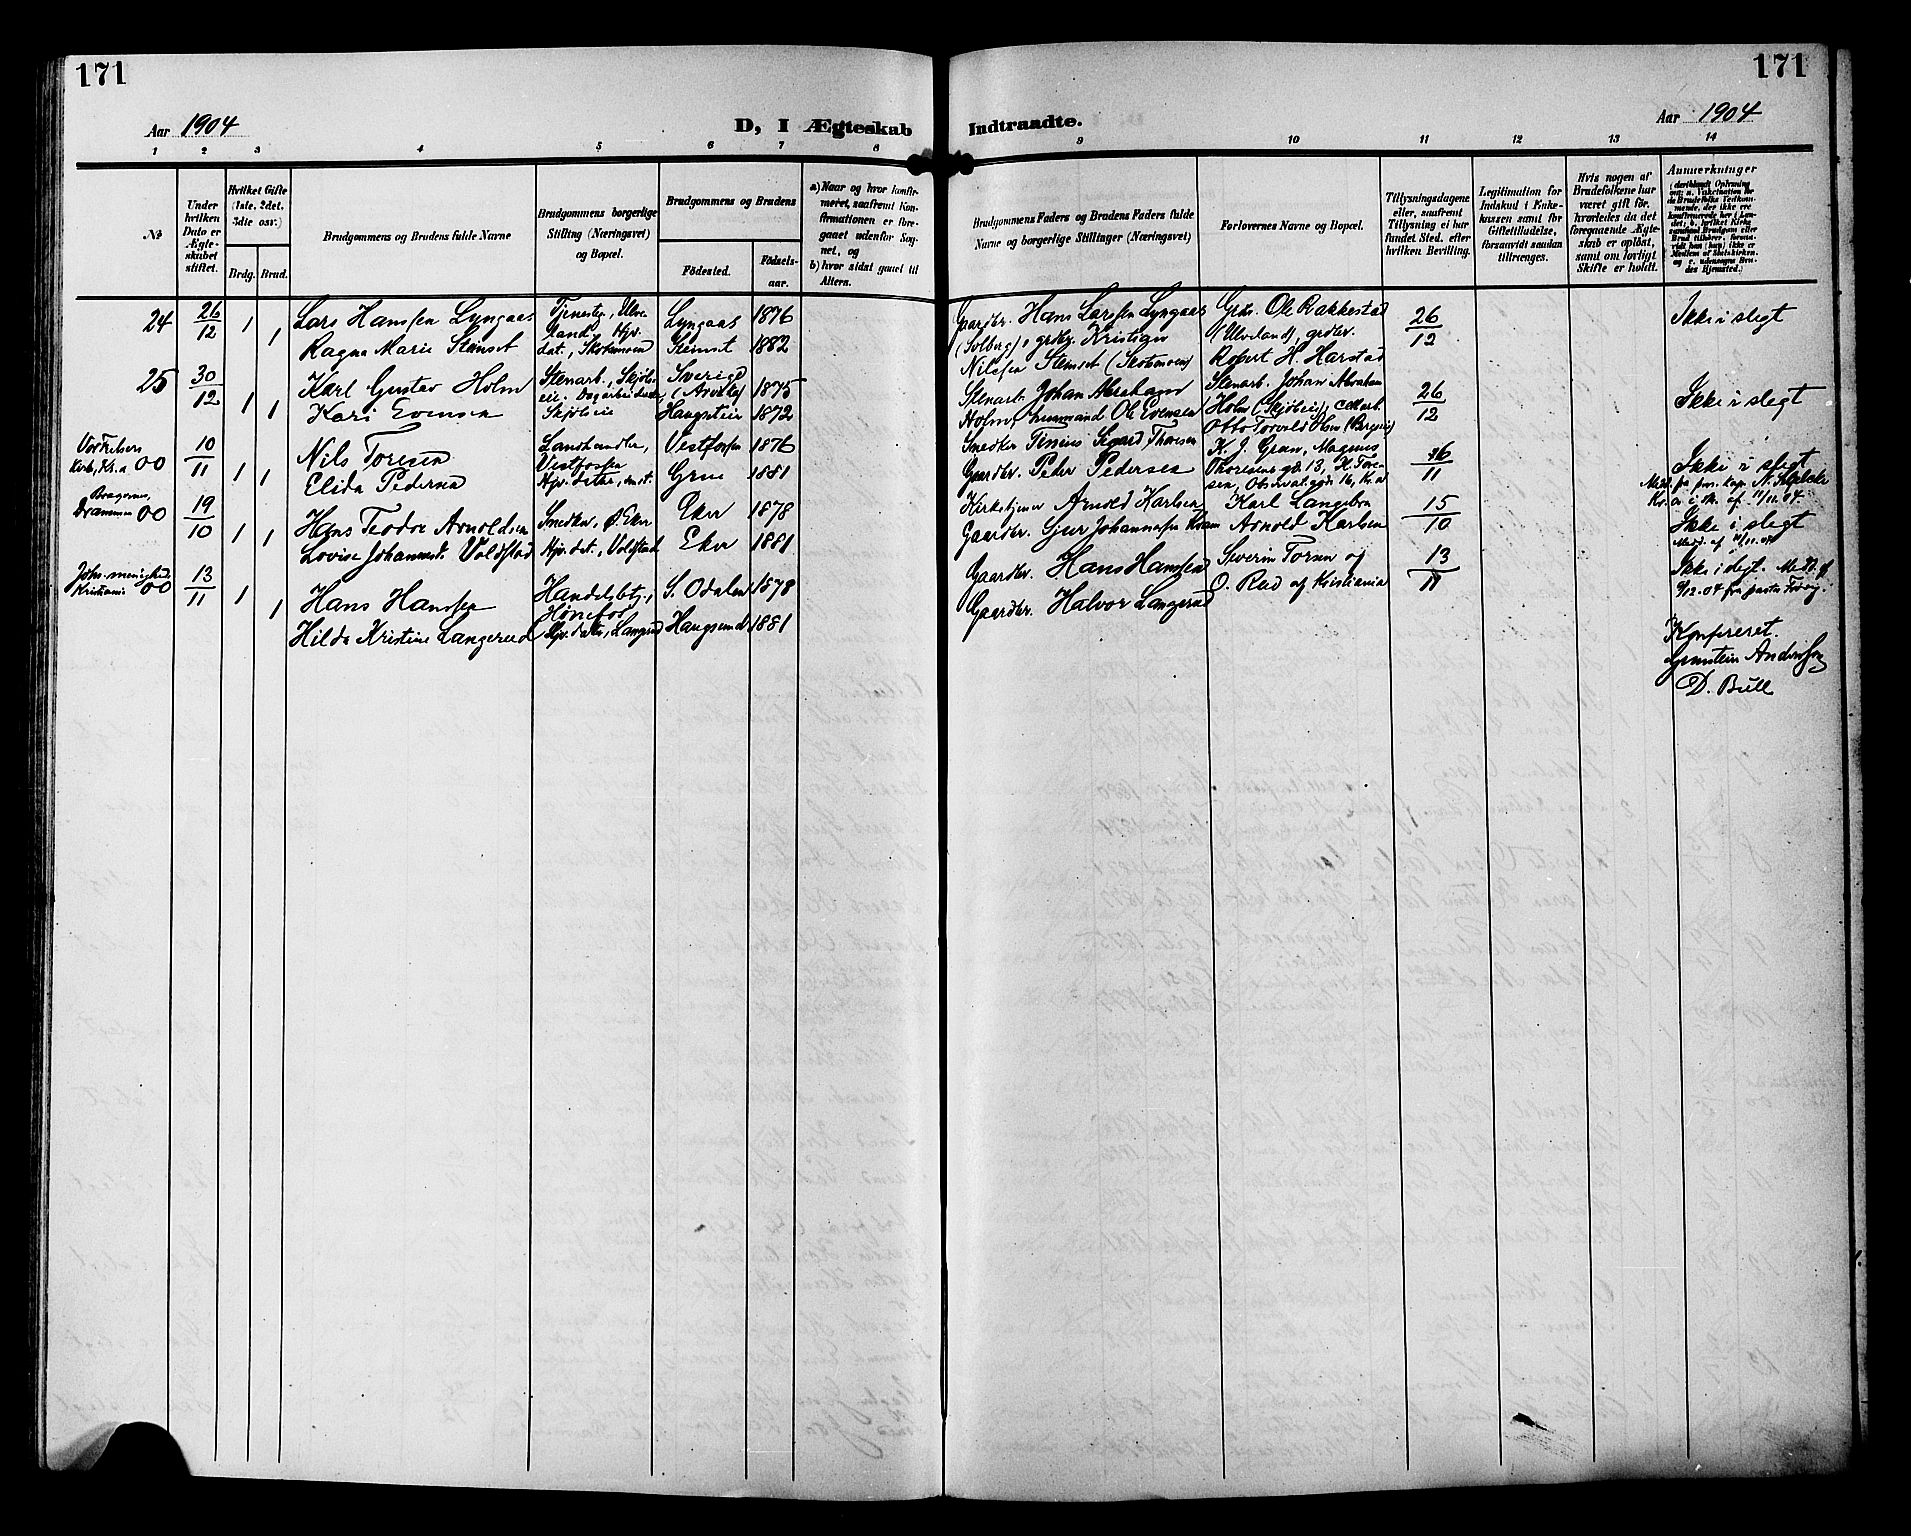 171
171
Aar 1904
D, I Ægteskab Indtraadte.
Aar 1904
1 2 3 4 5 6 7 8 9 10 11 12 13 14
№
Under hvilken Dato er Ægteskabet stiftet.
Hvilket Gifte (1ste, 2det, 3die osv.)
Brdg. Brud.
Brudgommens og Brudens fulde Navne
Brudgommens borgerlige Stilling (Næringsvei) og Bopæl.
Brudgommens og Brudens
Fødested.
Fødselsaar.
a) Naar og hvor konfirmeret, saafremt Konfirmationen er foregaaet udenfor Sognet, og
b) hvor sidst gaaet til Altern.
Brudgommens Faders og Brudens Faders fulde Navne og borgerlige Stillinger (Næringsvei)
Forlovernes Navne og Bopæl.
Tillysningsdagene eller, saafremt Tillysning ei har fundet Sted, efter hvilken Bevilling.
Legitimation for Indskud i Enkekassen samt for Giftetilladelse, forsaavidt saadan tiltrænges.
Hvis nogen af Brudefolkene har været gift før, hvorledes da det foregaaende Ægteskab er opløst, samt om lovligt Skifte er holdt.
Anmærkninger
24 26/12 1 1
Lars Hanssen Lyngaas
Ragna Marie Stemset
Lyngaas 1876
Stemset 1882
Gaardbr. Hans Larsen Lyngaas
(Solberg), grdbr. Kristian
Nilssen Stemset (Skotmoen)
Grbr. Ole Rakkestad
(Ulverland), grdbr.
Robert H. Harstad
26/12
Ikke i slegt
25 30/12 1 1
Karl Gustav Holm
Kari Evensen
Stenarb., Skjøb-
Sverige
(Arvika) 1875
Haugstein 1872
Stenarb. Johan Abraham
Holm, husmand Ole Evensen
Stenarb. Johan Abraham
Otto Torvald Olsen (Bergm)
26/12
Ikke i slegt
Vor Frelsers
Kirke, Kr.a 00 10/11 1 1
Nils Toresen
Elida Pedersen
Landhandler,
Vestfossen
Vestfossen 1876
Grue 1881
Smedker Tinius Sigard Thoresen
Gaardbr. Peder Pedersen
K. J. Gran, Magnus
Thoresens gd. 13, K. Tore-
sen, Observat. gd. 16, Kr.a
6/11
Ikke i slegt
Bragernes,
Drammen 00 19/10 1 1
Hans Teodor Arnoldsen
Lovise Johannesd. Voldstad
Smedker, Ø. Eker
Hjv. dat., Voldstad
Eker 1878
Eker 1881
Kirketjener Arnold Karlsen
Gaardbr. Sjur Johannessen Kvam
Karl Langebro
Arnold Karlsen
15/10
Ikke i slegt
Medd. af 11/11.04
Johs. menighed
Kristiania 00 13/11 1 1
Hans Hanssen
Hilda Kristine Langerud
Handelsbtj.,
Hønefos
Hjv. datter, Langrud
S. Odalen 1878
Haugsund 1881
Gaardbr. Hans Hanssen
Gaardbr. Halvor Langerud
Severin Torsen og
O. Rud af Kristiania
13/11
Ikke i slegt. Medd. af
9/12.04 fra pastor
Konfereret.
D. Bull